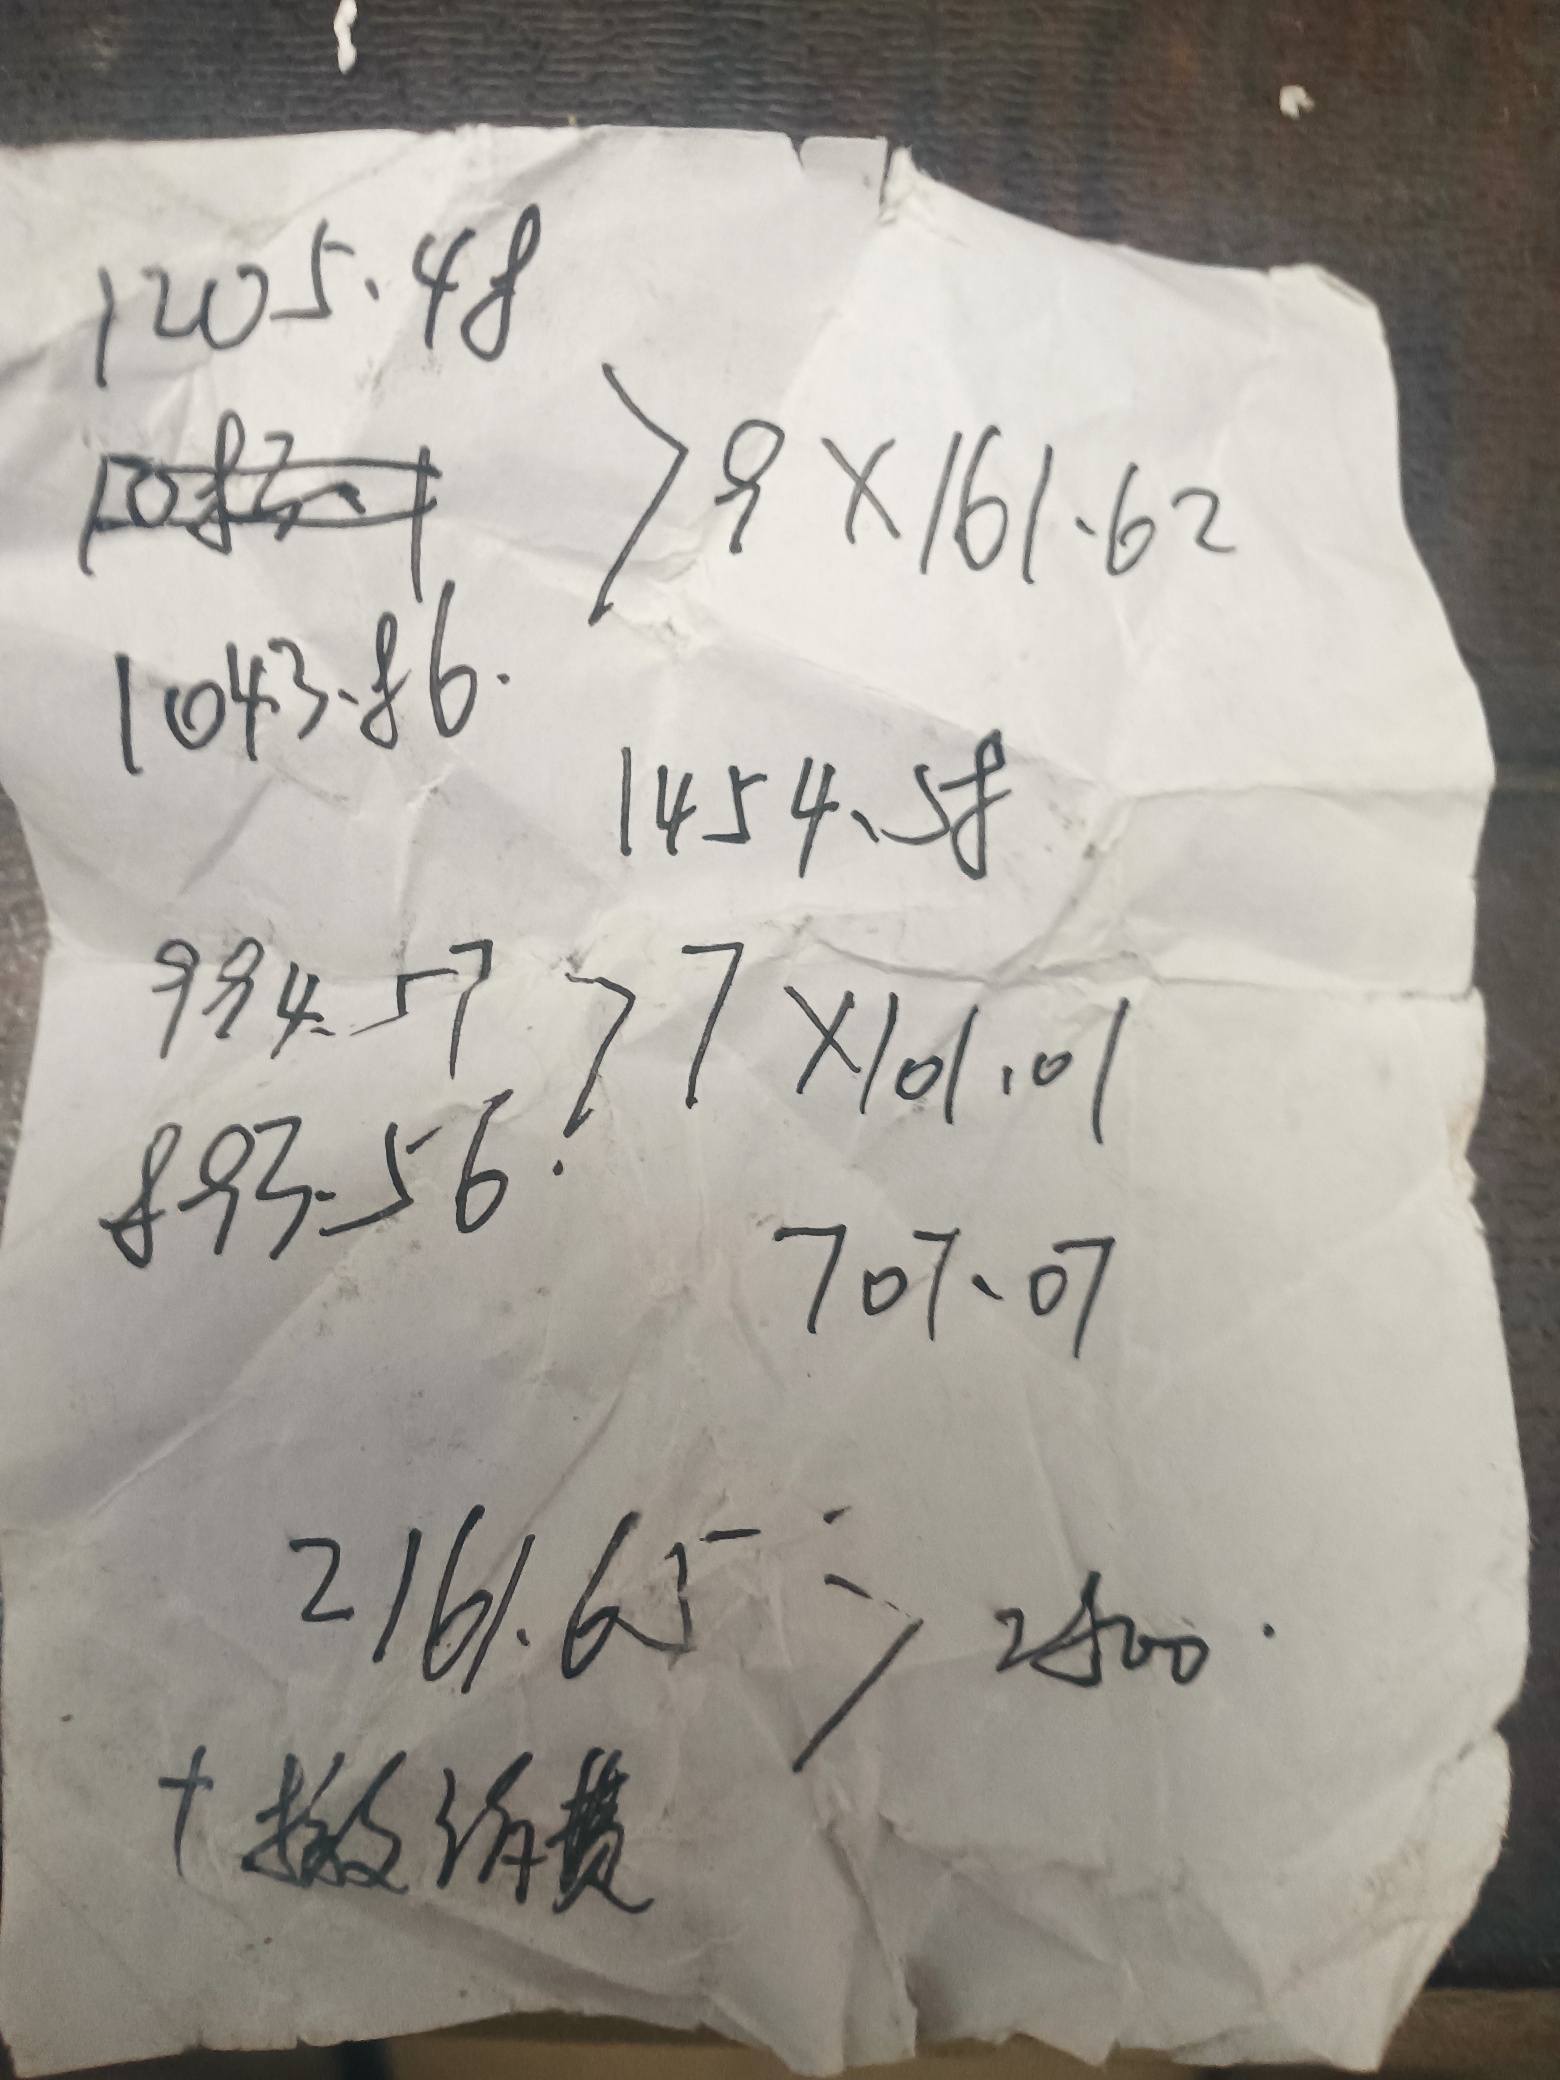 1205.48
9 X 161.62
1043.86.
1454.58
994.57 7 X 101.01
893.56.
707.07
2161.65
2800.
+ 缴纳费